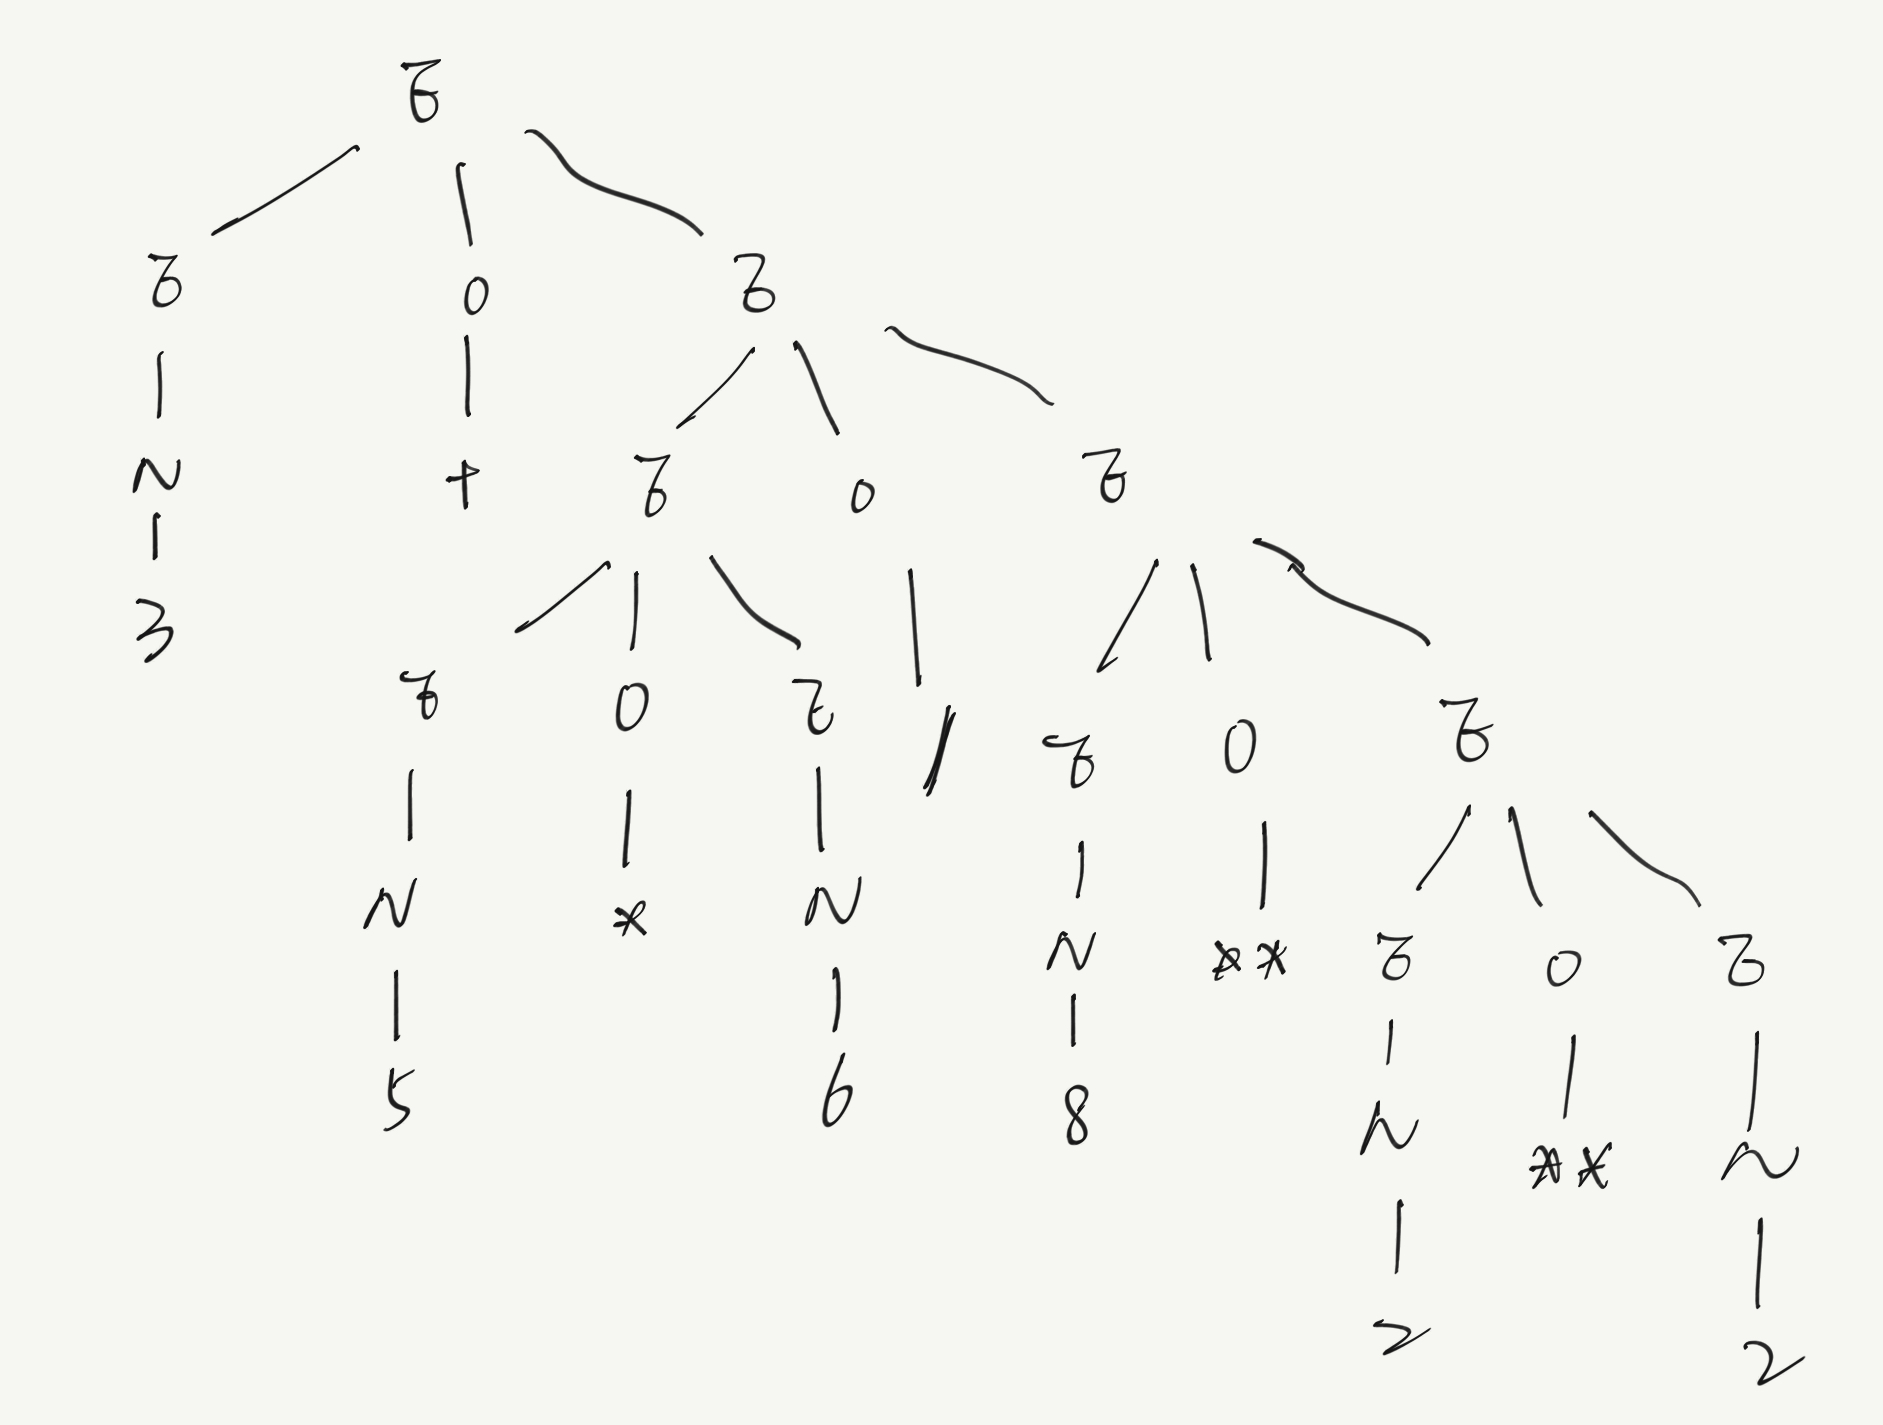 E
E O E
N + E O E
3
E O E / E O E
N * N N ** E O E
5 6 8 N ** N
2 2